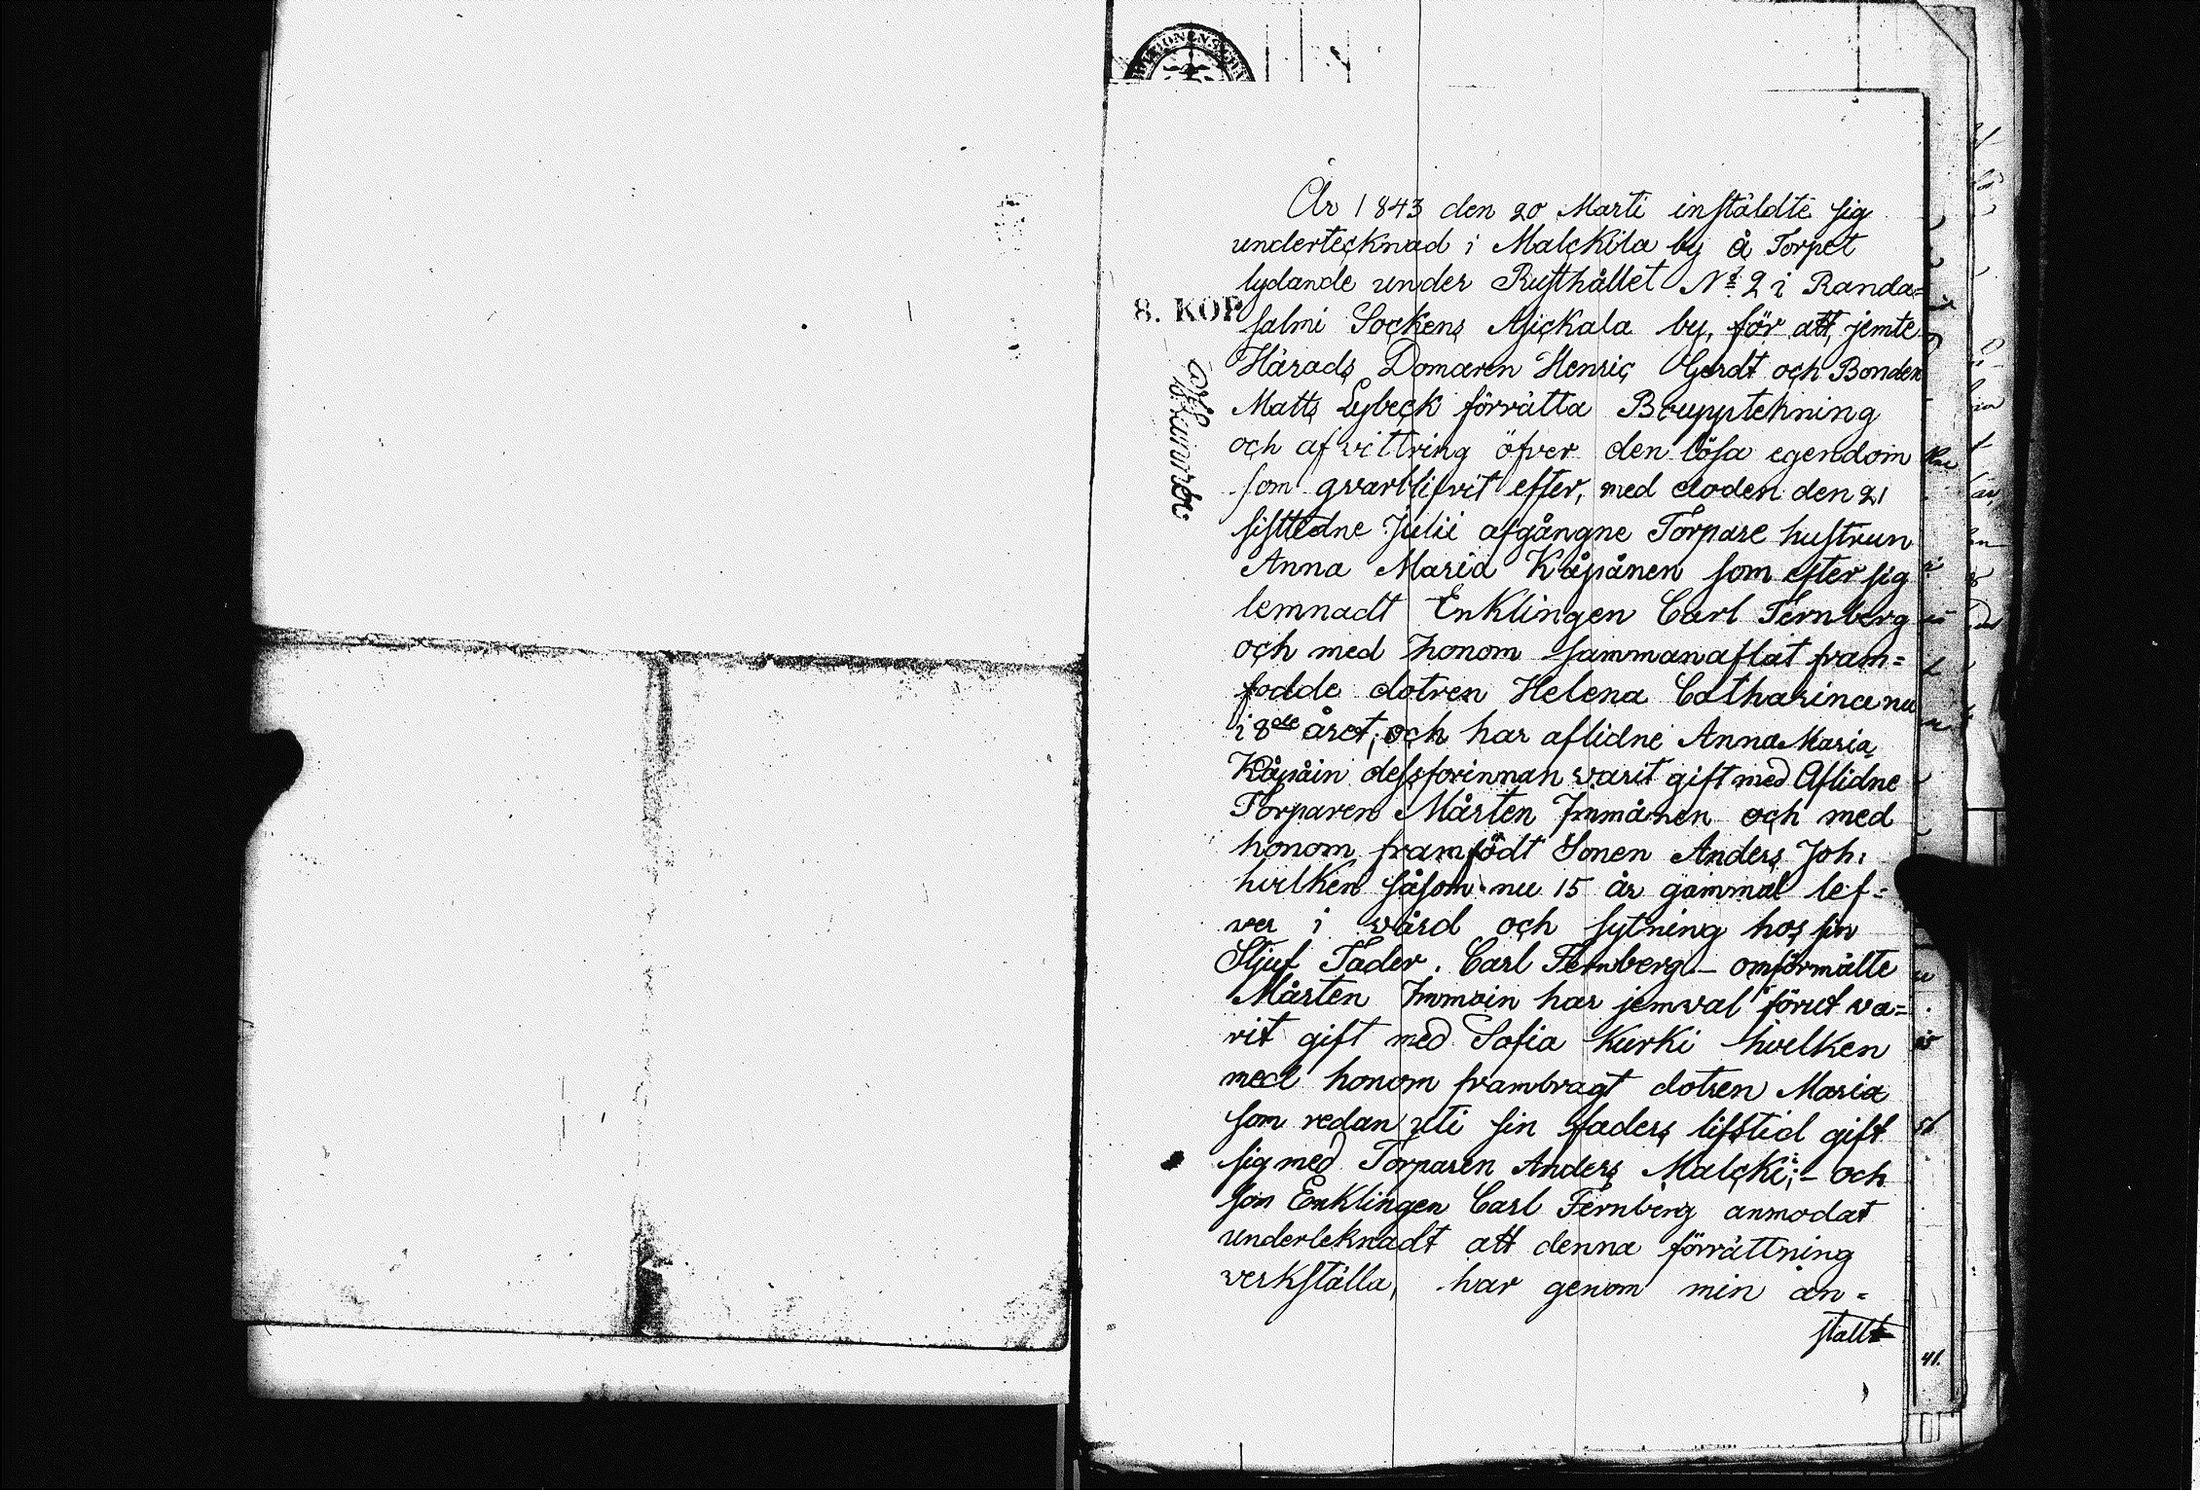 År 1843 den 20 Marti instäldte sig
undertecknad i Malckila by å Torpet
lydande under Rusthållet No 2 i Randa=
8. KOP.
salmi Sockens Asickala by, för att, jemte
Härads Domaren Henric Gerdt och Bonden
Matts Lybeck förrätta Boupptekning
och afvittring öfver den lösa egendom
som qvarblifvit efter, med döden den 21
sistledne Julii afgångne Torpare hustrun
Anna Maria Kåpånen som efter sig
lemnadt Enklingen Carl Fernberg
och med honom sammanaflat fram=
födde dotren Helena Catharina nu
i 8de året; och har aflidne Anna Maria
Kåpåin dessforinnan varit gift med Aflidne
Torparen Mårten Immånen och med
honom framfödt Sonen Anders Joh:
hvilken såsom nu 15 år gammal lef=
ver i vård och sytning hos sin
Stjuf Fader. Carl Fernberg – omförmälte
Mårten Immoin har jemväl förut va=
rit gift med Sofia Kurki hvilken
med honom frambragt dotren Maria
som redan uti sin faders lifstid gift
sig med Torparen Anders Malcki; – och
son Enklingen Carl Fernberg anmodat
underteknadt att denna förrättning
verkställa, har genom min an=
stallt
41.